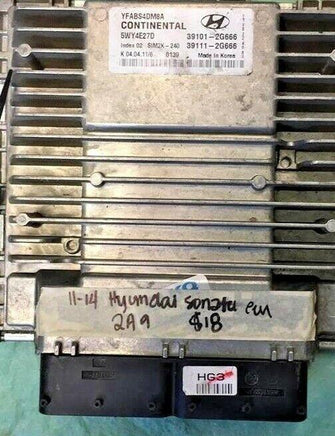 YFABS4DM8A
CONTINENTAL
HYUNDAI
5WY4E27D 39101-2G666
Index 02 SIM2K-240 39111-2G666
K 04.04.11/6 0139 Made in Korea
11-14 Hyundai Sonata ecu
2A9 $18
HG3